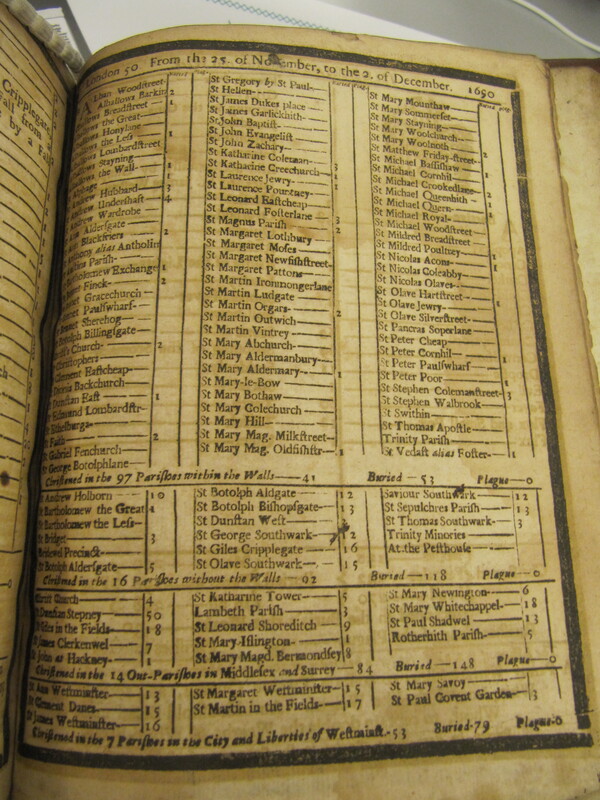 London 50 From the 25. of November, to the 2. of December. 1690
Buried Plag.
lban Woodstreet
Alhallows Barkin 2
llows Breadstreet
ows the Great 1
ows Honylane
ows the Less
ows Lombardstreet 1
ows Stayning
ows the Wall 1
lphage 1
Andrew Hubbard 3
Undershaft 4
Andrew Wardrobe
Aldersgate
Blackfriers 2
alias Antholin
Parish
tholomew Exchange 1
Finck 2
Gracechurch
Paulswharf
Sherehog
Botolph Billingsgate
Church 2
Christophers
Clement Eastcheap
Backchurch
Dunstan East 1
Edmund Lombardstr
Ethelburga
St Faith 2
St Gabriel Fenchurch
St George Botolphlane
St Gregory by St Paul
St Hellen
St James Dukes place
St James Garlickhith
St John Baptist
St John Evangelist
St John Zachary
St Katharine Coleman
St Katharine Creechurch 3
St Laurence Jewry
St Laurence Pountney
St Leonard Eastcheap
St Leonard Fosterlane
St Magnus Parish 3
St Margaret Lothbury 2
St Margaret Moses
St Margaret Newfishstreet
St Margaret Pattons
St Martin Ironmongerlane
St Martin Ludgate
St Martin Orgars
St Martin Outwich 2
St Martin Vintrey
St Mary Abchurch
St Mary Aldermanbury
St Mary Aldermary 1
St Mary-le-Bow
St Mary Bothaw
St Mary Colechurch
St Mary Hill
St Mary Mag. Milkstreet
St Mary Mag. Oldfishstr 1
St Mary Mounthaw
St Mary Sommerset
St Mary Stayning
St Mary Woolchurch
St Mary Woolnoth
St Matthew Friday-street 2
St Michael Bassishaw
St Michael Cornhil 1
St Michael Crookedlane 2
St Michael Queenhith 1
St Michael Quern 1
St Michael Royal
St Michael Woodstreet
St Mildred Breadstreet
St Mildred Poultney
St Nicolas Acons 1
St Nicolas Coleabby 1
St Nicolas Olaves
St Olave Hartstreet 1
St Olave Jewry
St Olave Silverstreet 2
St Pancras Soperlane
St Peter Cheap
St Peter Cornhil
St Peter Paulswharf 1
St Peter Poor 1
St Stephen Colemanstreet 3
St Stephen Walbrook
St Swithin
St Thomas Apostle
Trinity Parish
St Vedast alias Foster 1
Christned in the 97 Parishes within the Walls 41 Buried 53 Plague 0
St Andrew Holborn 10
St Bartholomew the Great 4
St Bartholomew the Less
St Bridget 3
Bridewel Precinct
St Botolph Aldersgate 5
St Botolph Aldgate 12
St Botolph Bishopsgate 13
St Dunstan West
St George Southwark 2
St Giles Cripplegate 16
St Olave Southwark 15
Saviour Southwark 12
St Sepulchres Parish 13
St Thomas Southwark 3
Trinity Minories
At the Pesthouse
Christned in the 16 Parishes without the Walls 92 Buried 118 Plague 0
Christ Church 4
St Dunstan Stepney 50
St Giles in the Fields 18
St James Clerkenwel 7
St John at Hackney 1
St Katharine Tower 5
Lambeth Parish 3
St Leonard Shoreditch 9
St Mary Islington 1
St Mary Magd. Bermondsey 8
St Mary Newington 6
St Mary Whitechappel 18
St Paul Shadwel 13
Rotherhith Parish 5
Christned in the 14 Out-Parishes in Middlesex and Surrey 84 Buried 148 Plague 0
St Ann Westminster 13
St Clement Danes 15
St James Westminster 16
St Margaret Westminster 15
St Martin in the Fields 17
St Mary Savoy
St Paul Covent Garden 3
Christned in the 7 Parishes in the City and Liberties of Westminst. 53 Buried 79 Plague 0